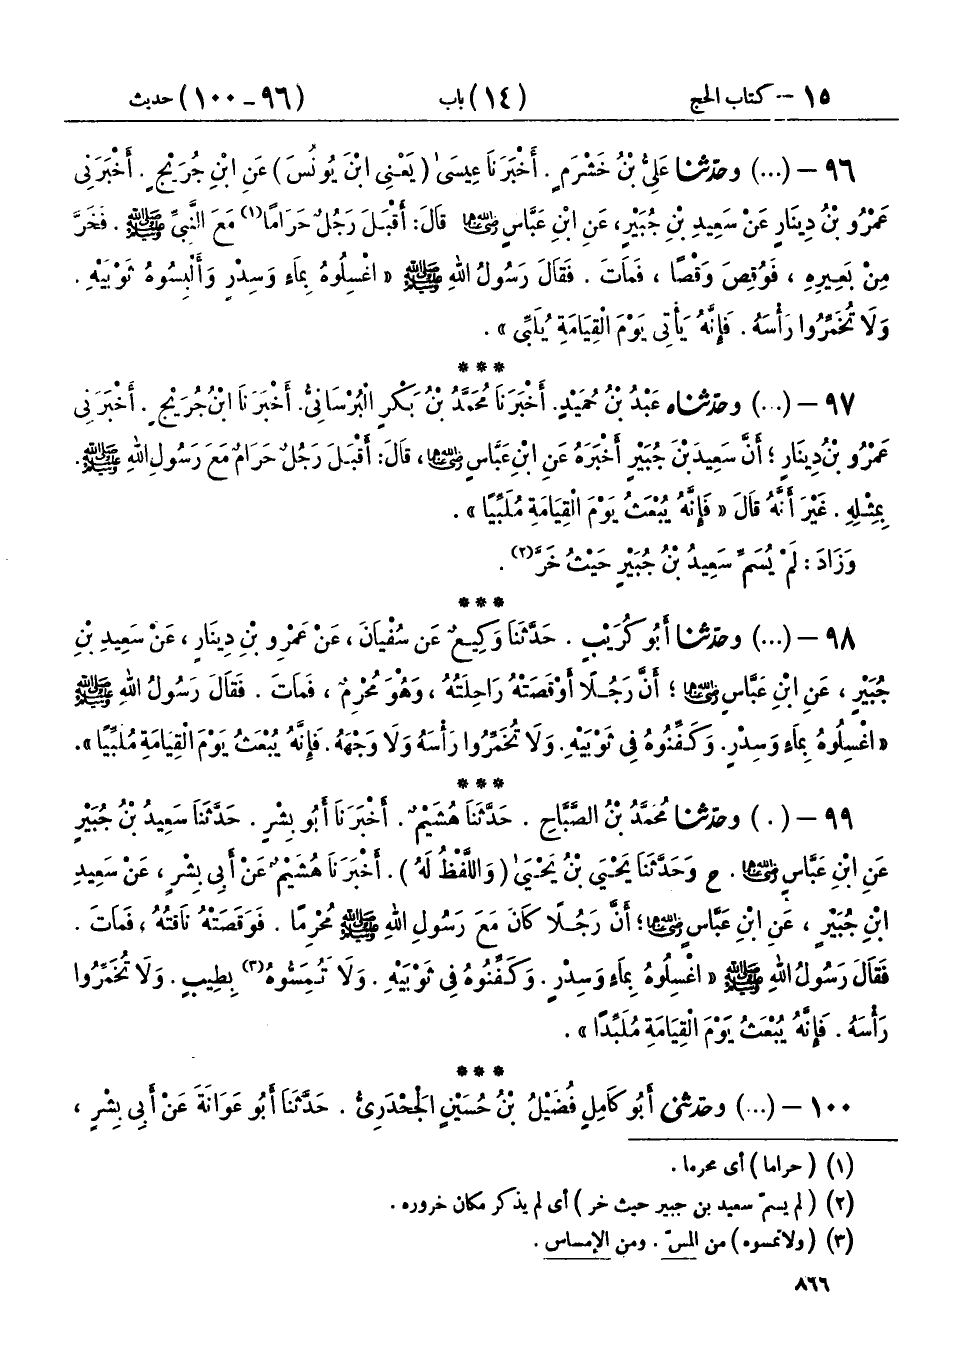 ١٥ – كتاب الحج (١٤) باب (٩٦–١٠٠) حديث
٩٦ – (...) وحدثنا عَلِىُّ بْنُ خَشْرَمٍ. أَخْبَرَنَا عِيسَىٰ (يَعْنِى ابْنَ يُونُسَ) عَنِ ابْنِ جُرَيْجٍ. أَخْبَرَنِى
عَمْرُو بْنُ دِينَارٍ عَنْ سَعِيدِ بْنِ جُبَيْرٍ، عَنِ ابْنِ عَبَّاسٍ رضي الله عنهما قَالَ: أَقْبَلَ رَجُلٌ حَرَامًا(١) مَعَ النَّبِىِّ ﷺ. فَخَرَّ
مِنْ بَعِيرِهِ، فَوُقِصَ وَقْصًا، فَمَاتَ. فَقَالَ رَسُولُ اللهِ ﷺ « اغْسِلُوهُ بِمَاءٍ وَسِدْرٍ وَأَلْبِسُوهُ ثَوْبَيْهِ.
وَلَا تُخَمِّرُوا رَأْسَهُ. فَإِنَّهُ يَأْتِى يَوْمَ الْقِيَامَةِ يُلَبِّى ».
***
٩٧ – (...) وحدثناه عَبْدُ بْنُ حُمَيْدٍ. أَخْبَرَنَا مُحَمَّدُ بْنُ بَكْرٍ الْبُرْسَانِىُّ. أَخْبَرَنَا ابْنُ جُرَيْجٍ. أَخْبَرَنِى
عَمْرُو بْنُ دِينَارٍ؛ أَنَّ سَعِيدَ بْنَ جُبَيْرٍ أَخْبَرَهُ عَنِ ابْنِ عَبَّاسٍ رضي الله عنهما، قَالَ: أَقْبَلَ رَجُلٌ حَرَامٌ مَعَ رَسُولِ اللهِ ﷺ.
بِمِثْلِهِ. غَيْرَ أَنَّهُ قَالَ « فَإِنَّهُ يُبْعَثُ يَوْمَ الْقِيَامَةِ مُلَبِّيًا ».
وَزَادَ: لَمْ يُسَمِّ سَعِيدُ بْنُ جُبَيْرٍ حَيْثُ خَرَّ(٢).
***
٩٨ – (...) وحدثنا أَبُو كُرَيْبٍ. حَدَّثَنَا وَكِيعٌ عَنْ سُفْيَانَ، عَنْ عَمْرِو بْنِ دِينَارٍ، عَنْ سَعِيدِ بْنِ
جُبَيْرٍ، عَنِ ابْنِ عَبَّاسٍ رضي الله عنهما؛ أَنَّ رَجُلًا أَوْقَصَتْهُ رَاحِلَتُهُ، وَهُوَ مُحْرِمٌ، فَمَاتَ. فَقَالَ رَسُولُ اللهِ ﷺ
« اغْسِلُوهُ بِمَاءٍ وَسِدْرٍ. وَكَفِّنُوهُ فِى ثَوْبَيْهِ. وَلَا تُخَمِّرُوا رَأْسَهُ وَلَا وَجْهَهُ. فَإِنَّهُ يُبْعَثُ يَوْمَ الْقِيَامَةِ مُلَبِّيًا ».
***
٩٩ – (.) وحدثنا مُحَمَّدُ بْنُ الصَّبَّاحِ. حَدَّثَنَا هُشَيْمٌ. أَخْبَرَنَا أَبُو بِشْرٍ. حَدَّثَنَا سَعِيدُ بْنُ جُبَيْرٍ
عَنِ ابْنِ عَبَّاسٍ رضي الله عنهما. ح وَحَدَّثَنَا يَحْيَىٰ بْنُ يَحْيَىٰ (وَاللَّفْظُ لَهُ). أَخْبَرَنَا هُشَيْمٌ عَنْ أَبِى بِشْرٍ، عَنْ سَعِيدِ
ابْنِ جُبَيْرٍ، عَنِ ابْنِ عَبَّاسٍ رضي الله عنهما؛ أَنَّ رَجُلًا كَانَ مَعَ رَسُولِ اللهِ ﷺ مُحْرِمًا. فَوَقَصَتْهُ نَاقَتُهُ، فَمَاتَ.
فَقَالَ رَسُولُ اللهِ ﷺ « اغْسِلُوهُ بِمَاءٍ وَسِدْرٍ. وَكَفِّنُوهُ فِى ثَوْبَيْهِ. وَلَا تُمِسُّوهُ(٣) بِطِيبٍ. وَلَا تُخَمِّرُوا
رَأْسَهُ. فَإِنَّهُ يُبْعَثُ يَوْمَ الْقِيَامَةِ مُلَبِّدًا ».
***
١٠٠ – (...) وحدثنى أَبُو كَامِلٍ فُضَيْلُ بْنُ حُسَيْنٍ الْجَحْدَرِىُّ. حَدَّثَنَا أَبُو عَوَانَةَ عَنْ أَبِى بِشْرٍ،
(١) (حراما) أى محرما.
(٢) (لم يسمّ سعيد بن جبير حيث خر) أى لم يذكر مكان خروره.
(٣) (ولا تمسوه) من المسّ. ومن الإمساس.
٨٦٦